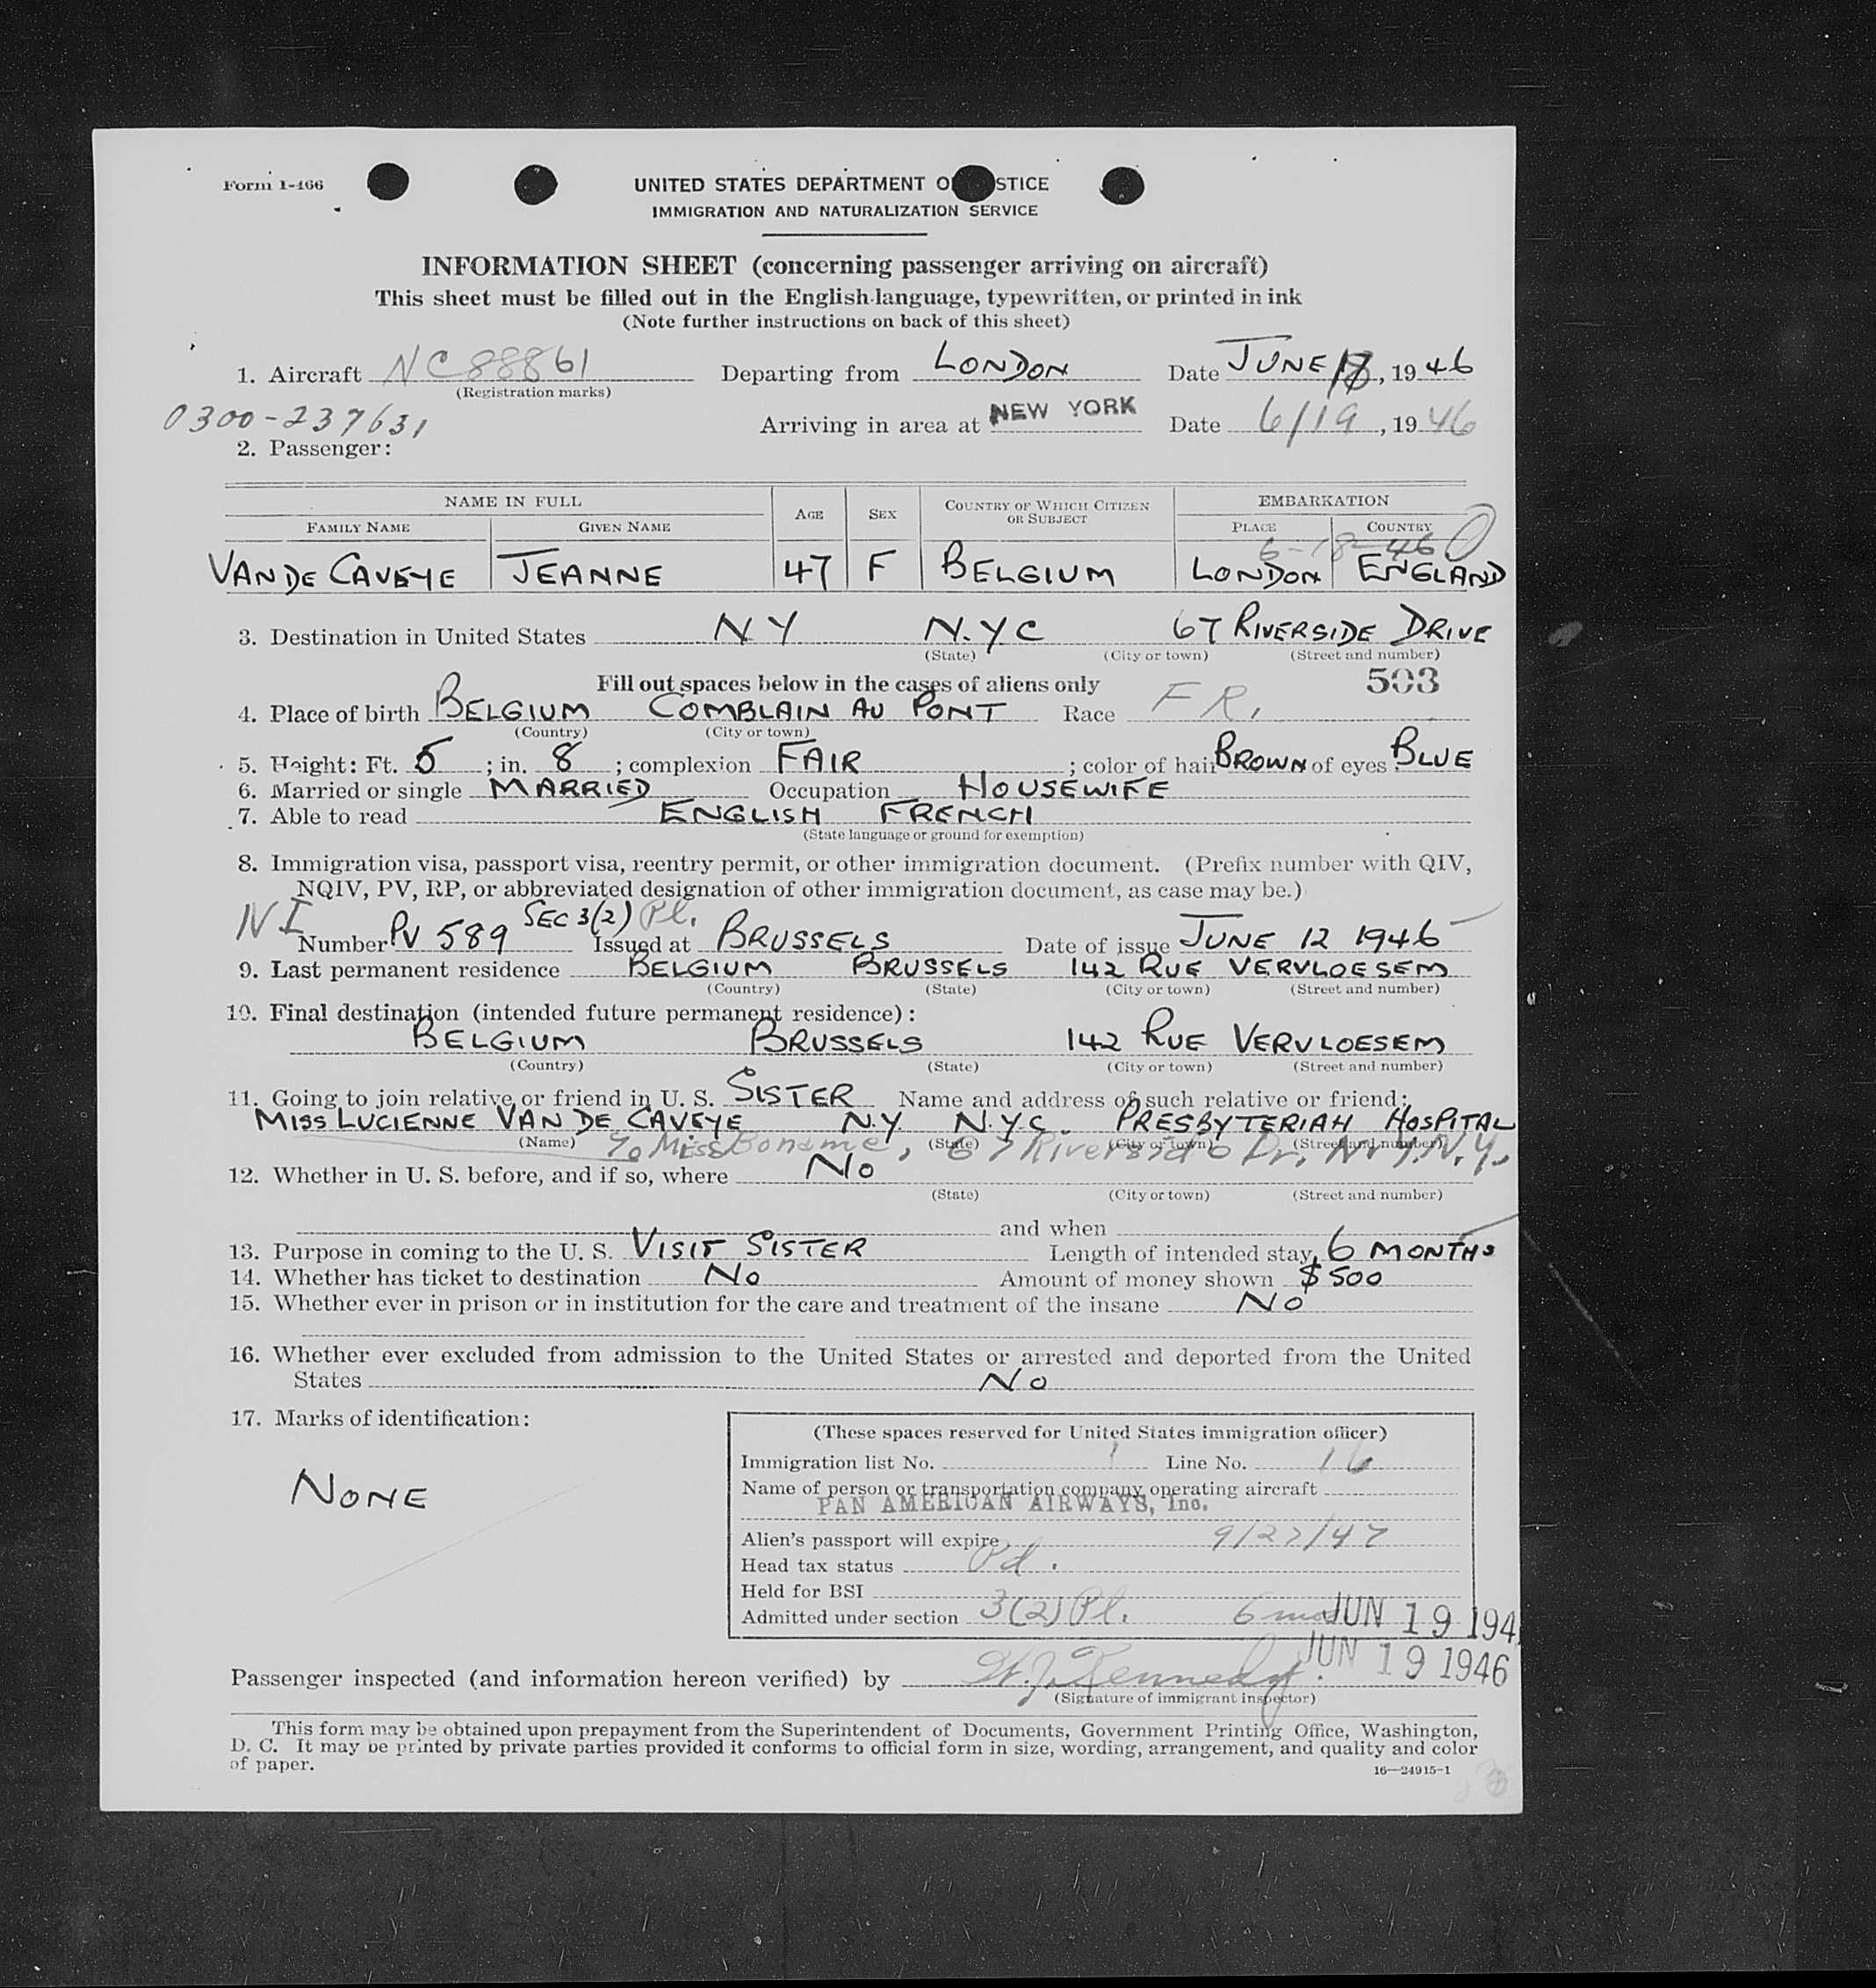 Form I-466
UNITED STATES DEPARTMENT O STICE
IMMIGRATION AND NATURALIZATION SERVICE
INFORMATION SHEET (concerning passenger arriving on aircraft)
This sheet must be filled out in the English language, typewritten, or printed in ink
(Note further instructions on back of this sheet)
1. Aircraft NC88861 Departing from LONDON Date JUNE 18, 1946
(Registration marks)
0300-237631 Arriving in area at NEW YORK Date 6/19, 1946
2. Passenger:
NAME IN FULL AGE SEX COUNTRY OF WHICH CITIZEN OR SUBJECT EMBARKATION
FAMILY NAME GIVEN NAME PLACE COUNTRY
6-18-46
VAN DE CAVEYE JEANNE 47 F BELGIUM LONDON ENGLAND
3. Destination in United States NY N.Y.C 67 RIVERSIDE DRIVE
(State) (City or town) (Street and number)
Fill out spaces below in the cases of aliens only 503
4. Place of birth BELGIUM COMBLAIN AU PONT Race FR.
(Country) (City or town)
5. Height: Ft. 5; in. 8; complexion FAIR; color of hair BROWN of eyes BLUE
6. Married or single MARRIED Occupation HOUSEWIFE
7. Able to read ENGLISH FRENCH
(State language or ground for exemption)
8. Immigration visa, passport visa, reentry permit, or other immigration document. (Prefix number with QIV,
NQIV, PV, RP, or abbreviated designation of other immigration document, as case may be.)
NI Number PV 589 SEC 3(2) Pl. Issued at BRUSSELS Date of issue JUNE 12 1946
9. Last permanent residence BELGIUM BRUSSELS 142 RUE VERVLOESEM
(Country) (State) (City or town) (Street and number)
10. Final destination (intended future permanent residence):
BELGIUM BRUSSELS 142 RUE VERVLOESEM
(Country) (State) (City or town) (Street and number)
11. Going to join relative or friend in U. S. SISTER Name and address of such relative or friend:
MISS LUCIENNE VAN DE CAVEYE N.Y. N.Y.C. PRESBYTERIAH HOSPITAL
(Name) (State) (City or town) (Street and number)
% Miss Boname, 67 Riverside Dr, N.Y.N.Y.
12. Whether in U. S. before, and if so, where NO
(State) (City or town) (Street and number)
and when
13. Purpose in coming to the U. S. VISIT SISTER Length of intended stay 6 MONTHS
14. Whether has ticket to destination NO Amount of money shown $500
15. Whether ever in prison or in institution for the care and treatment of the insane NO
16. Whether ever excluded from admission to the United States or arrested and deported from the United
States NO
17. Marks of identification:
NONE
(These spaces reserved for United States immigration officer)
Immigration list No. 1 Line No. 16
Name of person or transportation company operating aircraft
PAN AMERICAN AIRWAYS, Inc.
Alien's passport will expire 9/27/47
Head tax status Pd.
Held for BSI
Admitted under section 3(2) Pl. 6 mos JUN 19 194
JUN 19 1946
Passenger inspected (and information hereon verified) by W. J. Kennedy
(Signature of immigrant inspector)
This form may be obtained upon prepayment from the Superintendent of Documents, Government Printing Office, Washington,
D. C. It may be printed by private parties provided it conforms to official form in size, wording, arrangement, and quality and color
of paper.
16—24915-1